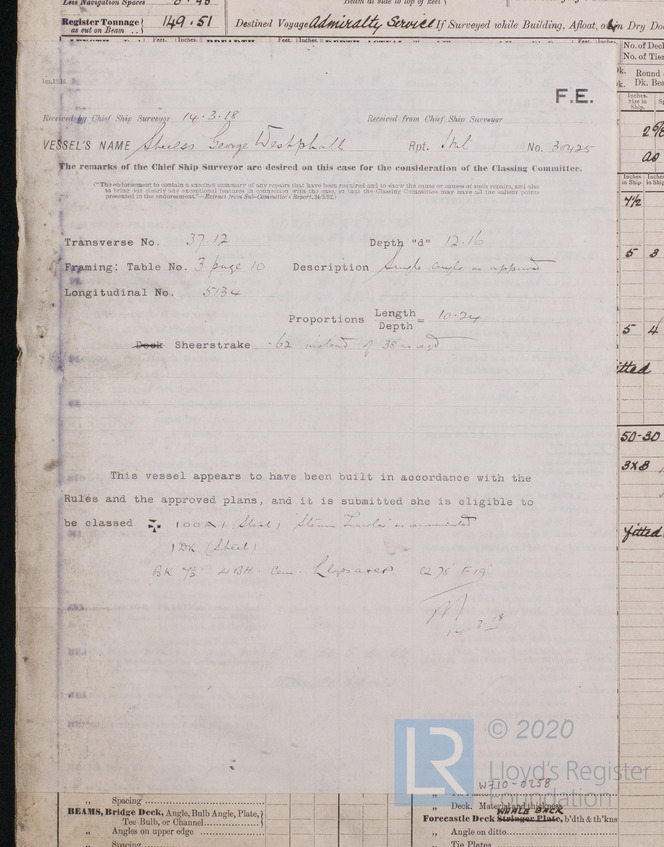 Less Navigation Spaces
Register Tonnage 149.51
as cut on Beam
Destined Voyage Admiralty Service If Surveyed while Building, Afloat, or in Dry Do
No. of Dec
No. of Tier
Round
Dk. Bea
F.E.
Received by Chief Ship Surveyor 14.3.18 Received from Chief Ship Surveyor
VESSEL'S NAME George Westphall Rpt. Hul No. 30425
The remarks of the Chief Ship Surveyor are desired on this case for the consideration of the Classing Committee.
("The endorsement to contain a succinct summary of any repairs that have been required and to show the cause or causes of such repairs, and also
to bring out clearly any exceptional features in connection with the case, so that the Classing Committee may have all the salient points
presented in the endorsement."—Extract from Sub-Committee's Report,
Transverse No. 37.12 Depth "d" 12.16
Framing: Table No. 3 page 10 Description Single angle as approved
Longitudinal No. 5134
Proportions Length
Depth = 10.24
Deck Sheerstrake .62 instead of 38
This vessel appears to have been built in accordance with the
Rules and the approved plans, and it is submitted she is eligible to
be classed ✠ 100A1 (Steel) "Steam Trawler"
1 Dk (Steel)
BK 7½" 4BH Cem.
18
© 2020
LR Lloyd's Register
Foundation
W710-0258
7½
5 3
5 4
itted
50-30
3x3
fitted
" Spacing
BEAMS, Bridge Deck, Angle, Bulb Angle, Plate,
Tee Bulb, or Channel
" Angles on upper edge
" Spacing
" Deck. Material and thickness
WHALE BACK
Forecastle Deck Stringer Plate, b'dth & th'kns
" Angle on ditto
" Tie Plates